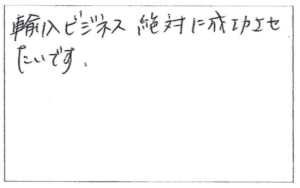 輸入ビジネス 絶対に成功させ
たいです。